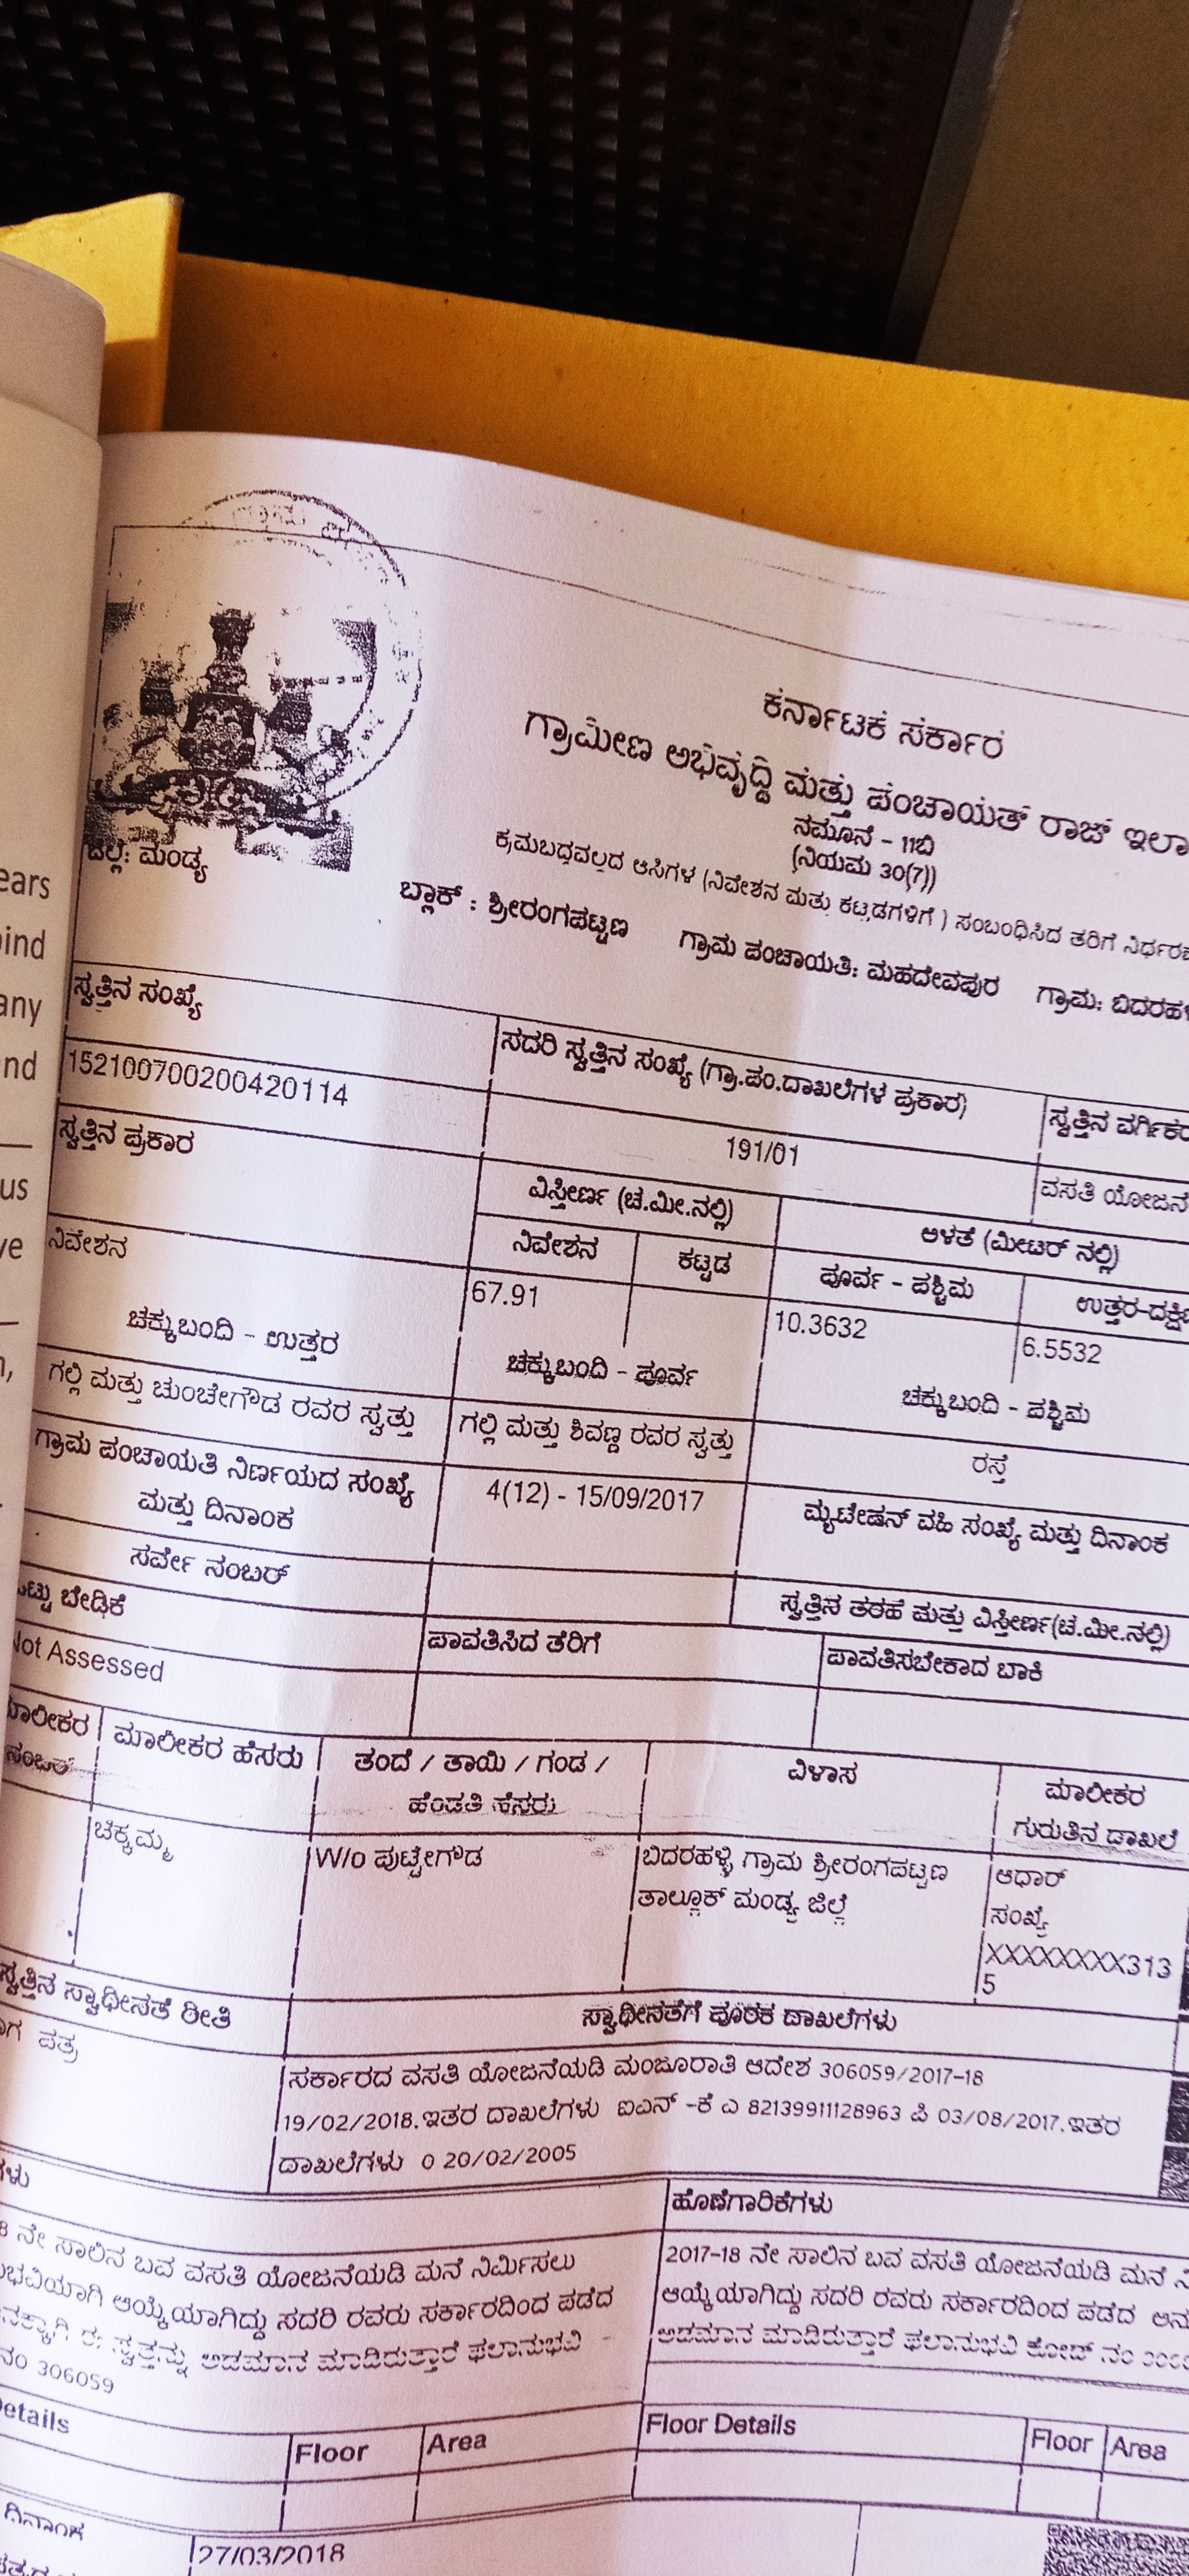 ears
ind
any
nd
us
ve
ಕರ್ನಾಟಕ ಸರ್ಕಾರ
ಗ್ರಾಮೀಣ ಅಭಿವೃದ್ಧಿ ಮತ್ತು ಪಂಚಾಯತ್ ರಾಜ್ ಇಲಾ
ನಮೂನೆ - 11ಬಿ
(ನಿಯಮ 30(7))
ಕ್ರಮಬದ್ಧವಲ್ಲದ ಆಸ್ತಿಗಳ (ನಿವೇಶನ ಮತ್ತು ಕಟ್ಟಡಗಳಿಗೆ ) ಸಂಬಂಧಿಸಿದ ತೆರಿಗೆ ನಿರ್ಧರಣ
ಜಿಲ್ಲೆ: ಮಂಡ್ಯ
ಬ್ಲಾಕ್ : ಶ್ರೀರಂಗಪಟ್ಟಣ ಗ್ರಾಮ ಪಂಚಾಯತಿ: ಮಹದೇವಪುರ ಗ್ರಾಮ: ಬಿದರಹಳ
ಸ್ವತ್ತಿನ ಸಂಖ್ಯೆ ಸದರಿ ಸ್ವತ್ತಿನ ಸಂಖ್ಯೆ (ಗ್ರಾ.ಪಂ.ದಾಖಲೆಗಳ ಪ್ರಕಾರ) ಸ್ವತ್ತಿನ ವರ್ಗಿಕರ
152100700200420114 191/01 ವಸತಿ ಯೋಜನೆ
ಸ್ವತ್ತಿನ ಪ್ರಕಾರ ವಿಸ್ತೀರ್ಣ (ಚ.ಮೀ.ನಲ್ಲಿ) ಅಳತೆ (ಮೀಟರ್ ನಲ್ಲಿ)
ನಿವೇಶನ ಕಟ್ಟಡ ಪೂರ್ವ - ಪಶ್ಚಿಮ ಉತ್ತರ-ದಕ್ಷಿಣ
ನಿವೇಶನ 67.91 10.3632 6.5532
ಚಕ್ಕುಬಂದಿ - ಉತ್ತರ ಚಕ್ಕುಬಂದಿ - ಪೂರ್ವ ಚಕ್ಕುಬಂದಿ - ಪಶ್ಚಿಮ
ಗಲ್ಲಿ ಮತ್ತು ಚುಂಚೇಗೌಡ ರವರ ಸ್ವತ್ತು ಗಲ್ಲಿ ಮತ್ತು ಶಿವಣ್ಣ ರವರ ಸ್ವತ್ತು ರಸ್ತೆ
ಗ್ರಾಮ ಪಂಚಾಯತಿ ನಿರ್ಣಯದ ಸಂಖ್ಯೆ 4(12) - 15/09/2017 ಮ್ಯುಟೇಷನ್ ವಹಿ ಸಂಖ್ಯೆ ಮತ್ತು ದಿನಾಂಕ
ಮತ್ತು ದಿನಾಂಕ
ಸರ್ವೇ ನಂಬರ್ ಸ್ವತ್ತಿನ ತರಹೆ ಮತ್ತು ವಿಸ್ತೀರ್ಣ(ಚ.ಮೀ.ನಲ್ಲಿ)
ಟ್ಟು ಬೇಡಿಕೆ ಪಾವತಿಸಿದ ತೆರಿಗೆ ಪಾವತಿಸಬೇಕಾದ ಬಾಕಿ
Not Assessed
ಮಾಲೀಕರ ಮಾಲೀಕರ ಹೆಸರು ತಂದೆ / ತಾಯಿ / ಗಂಡ / ವಿಳಾಸ ಮಾಲೀಕರ
ನಂಬರ್ ಹೆಂಡತಿ ಹೆಸರು ಗುರುತಿನ ದಾಖಲೆ
ಚಿಕ್ಕಮ್ಮ W/o ಪುಟ್ಟೇಗೌಡ ಬಿದರಹಳ್ಳಿ ಗ್ರಾಮ ಶ್ರೀರಂಗಪಟ್ಟಣ ಆಧಾರ್
ತಾಲ್ಲೂಕ್ ಮಂಡ್ಯ ಜಿಲ್ಲೆ ಸಂಖ್ಯೆ
XXXXXXXX313
5
ಸ್ವತ್ತಿನ ಸ್ವಾಧೀನತೆ ರೀತಿ ಸ್ವಾಧೀನತೆಗೆ ಪೂರಕ ದಾಖಲೆಗಳು
ಾಗ ಪತ್ರ ಸರ್ಕಾರದ ವಸತಿ ಯೋಜನೆಯಡಿ ಮಂಜೂರಾತಿ ಆದೇಶ 306059/2017-18
19/02/2018.ಇತರ ದಾಖಲೆಗಳು ಐಎನ್ -ಕೆ ಎ 82139911128963 ಪಿ 03/08/2017.ಇತರ
ದಾಖಲೆಗಳು 0 20/02/2005
ಗಳು ಹೊಣೆಗಾರಿಕೆಗಳು
8 ನೇ ಸಾಲಿನ ಬವ ವಸತಿ ಯೋಜನೆಯಡಿ ಮನೆ ನಿರ್ಮಿಸಲು 2017-18 ನೇ ಸಾಲಿನ ಬವ ವಸತಿ ಯೋಜನೆಯಡಿ ಮನೆ ನಿ
ುಭವಿಯಾಗಿ ಆಯ್ಕೆಯಾಗಿದ್ದು ಸದರಿ ರವರು ಸರ್ಕಾರದಿಂದ ಪಡೆದ ಆಯ್ಕೆಯಾಗಿದ್ದು ಸದರಿ ರವರು ಸರ್ಕಾರದಿಂದ ಪಡೆದ ಅನು
ನಕ್ಕಾಗಿ ಈ ಸ್ವತ್ತನ್ನು ಅಡಮಾನ ಮಾಡಿರುತ್ತಾರೆ ಫಲಾನುಭವಿ ಅಡಮಾನ ಮಾಡಿರುತ್ತಾರೆ ಫಲಾನುಭವಿ ಕೋಡ್ ನಂ
ನಂ 306059
Details Floor Area Floor Details Floor Area
ದಿನಾಂಕ 27/03/2018